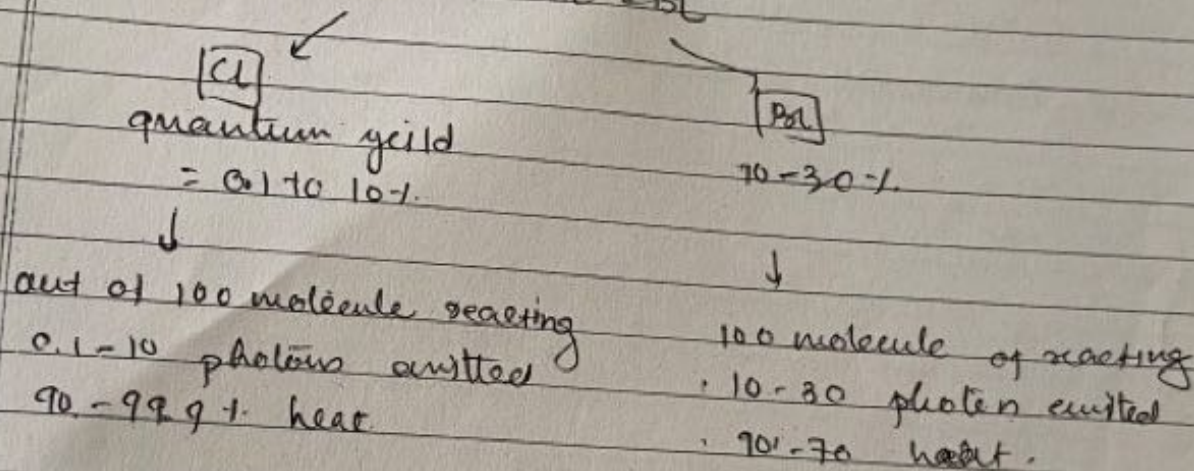 CL
quantium yeild
= 0.1 to 10%.
↓
out of 100 molecule reacting
0.1-10 photons emitted
90-99.9% heat
BL
10-30%.
↓
100 molecule of reacting
· 10-30 photon emitted
· 90-70 heat.